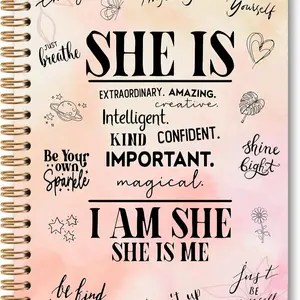 Yourself
JUST
breathe
SHE IS
EXTRAORDINARY. AMAZING.
creative.
Intelligent.
KIND CONFIDENT.
IMPORTANT.
magical.
Be Your
own
Sparkle
shine
bright
I AM SHE
SHE IS ME
be kind
just
BE